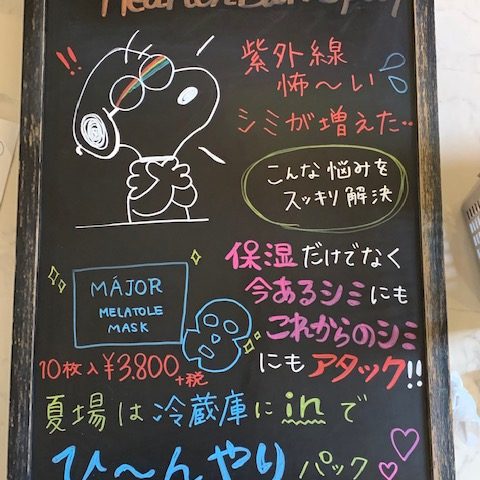 !!
紫外線
怖〜い
シミが増えた‥
こんな悩みを
スッキリ解決
保湿だけでなく
今あるシミにも
これからのシミ
にもアタック!!
MÁJOR
MELATOLE
MASK
10枚入¥3.800
+税
夏場は冷蔵庫にinで
ひ〜んやりパック